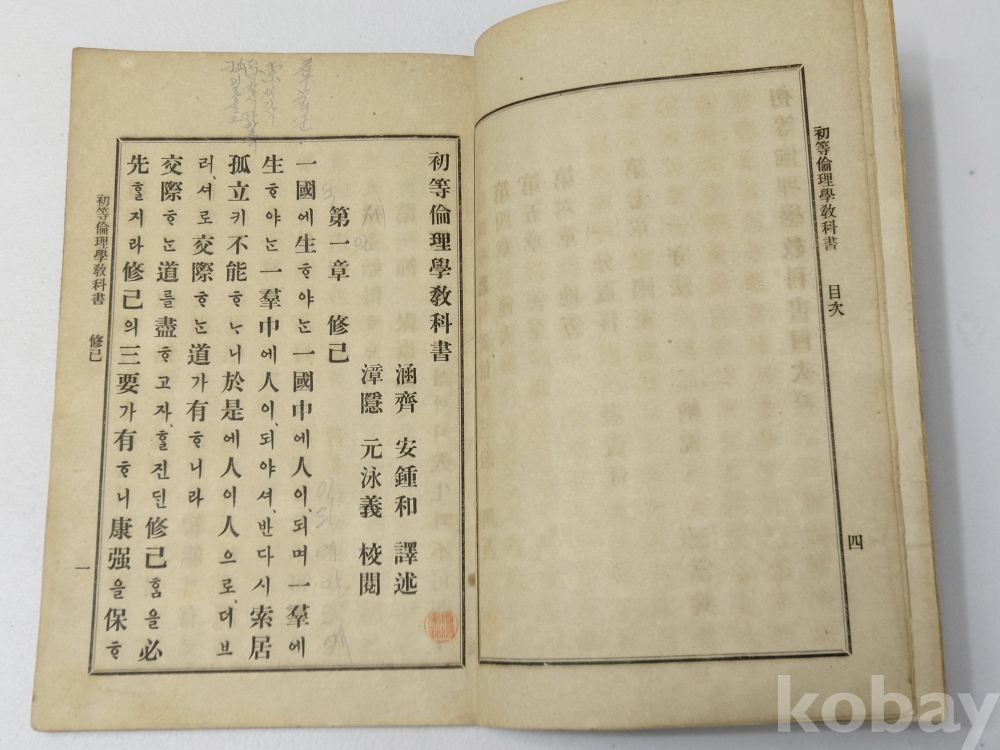 初等倫理學教科書
目次
四
初等倫理學教科書
涵齊 安鍾和 譯述
漳隱 元泳義 校閱
第一章 修己
一國에生ᄒᆞ야ᄂᆞᆫ一國中에人이、되며一羣에
生ᄒᆞ야ᄂᆞᆫ一羣中에人이、되야셔、반다시索居
孤立키不能ᄒᆞᄂᆞ니於是에人이人으로、더브
러、셔로交際ᄒᆞᄂᆞᆫ道가有ᄒᆞ니라
交際ᄒᆞᄂᆞᆫ道를盡ᄒᆞ고자、ᄒᆞᆯ진ᄃᆡᆫ修己ᄒᆞᆷ을必
先ᄒᆞᆯ지라修己의三要가有ᄒᆞ니康强을保ᄒᆞ
初等倫理學教科書
修己
一
kobay